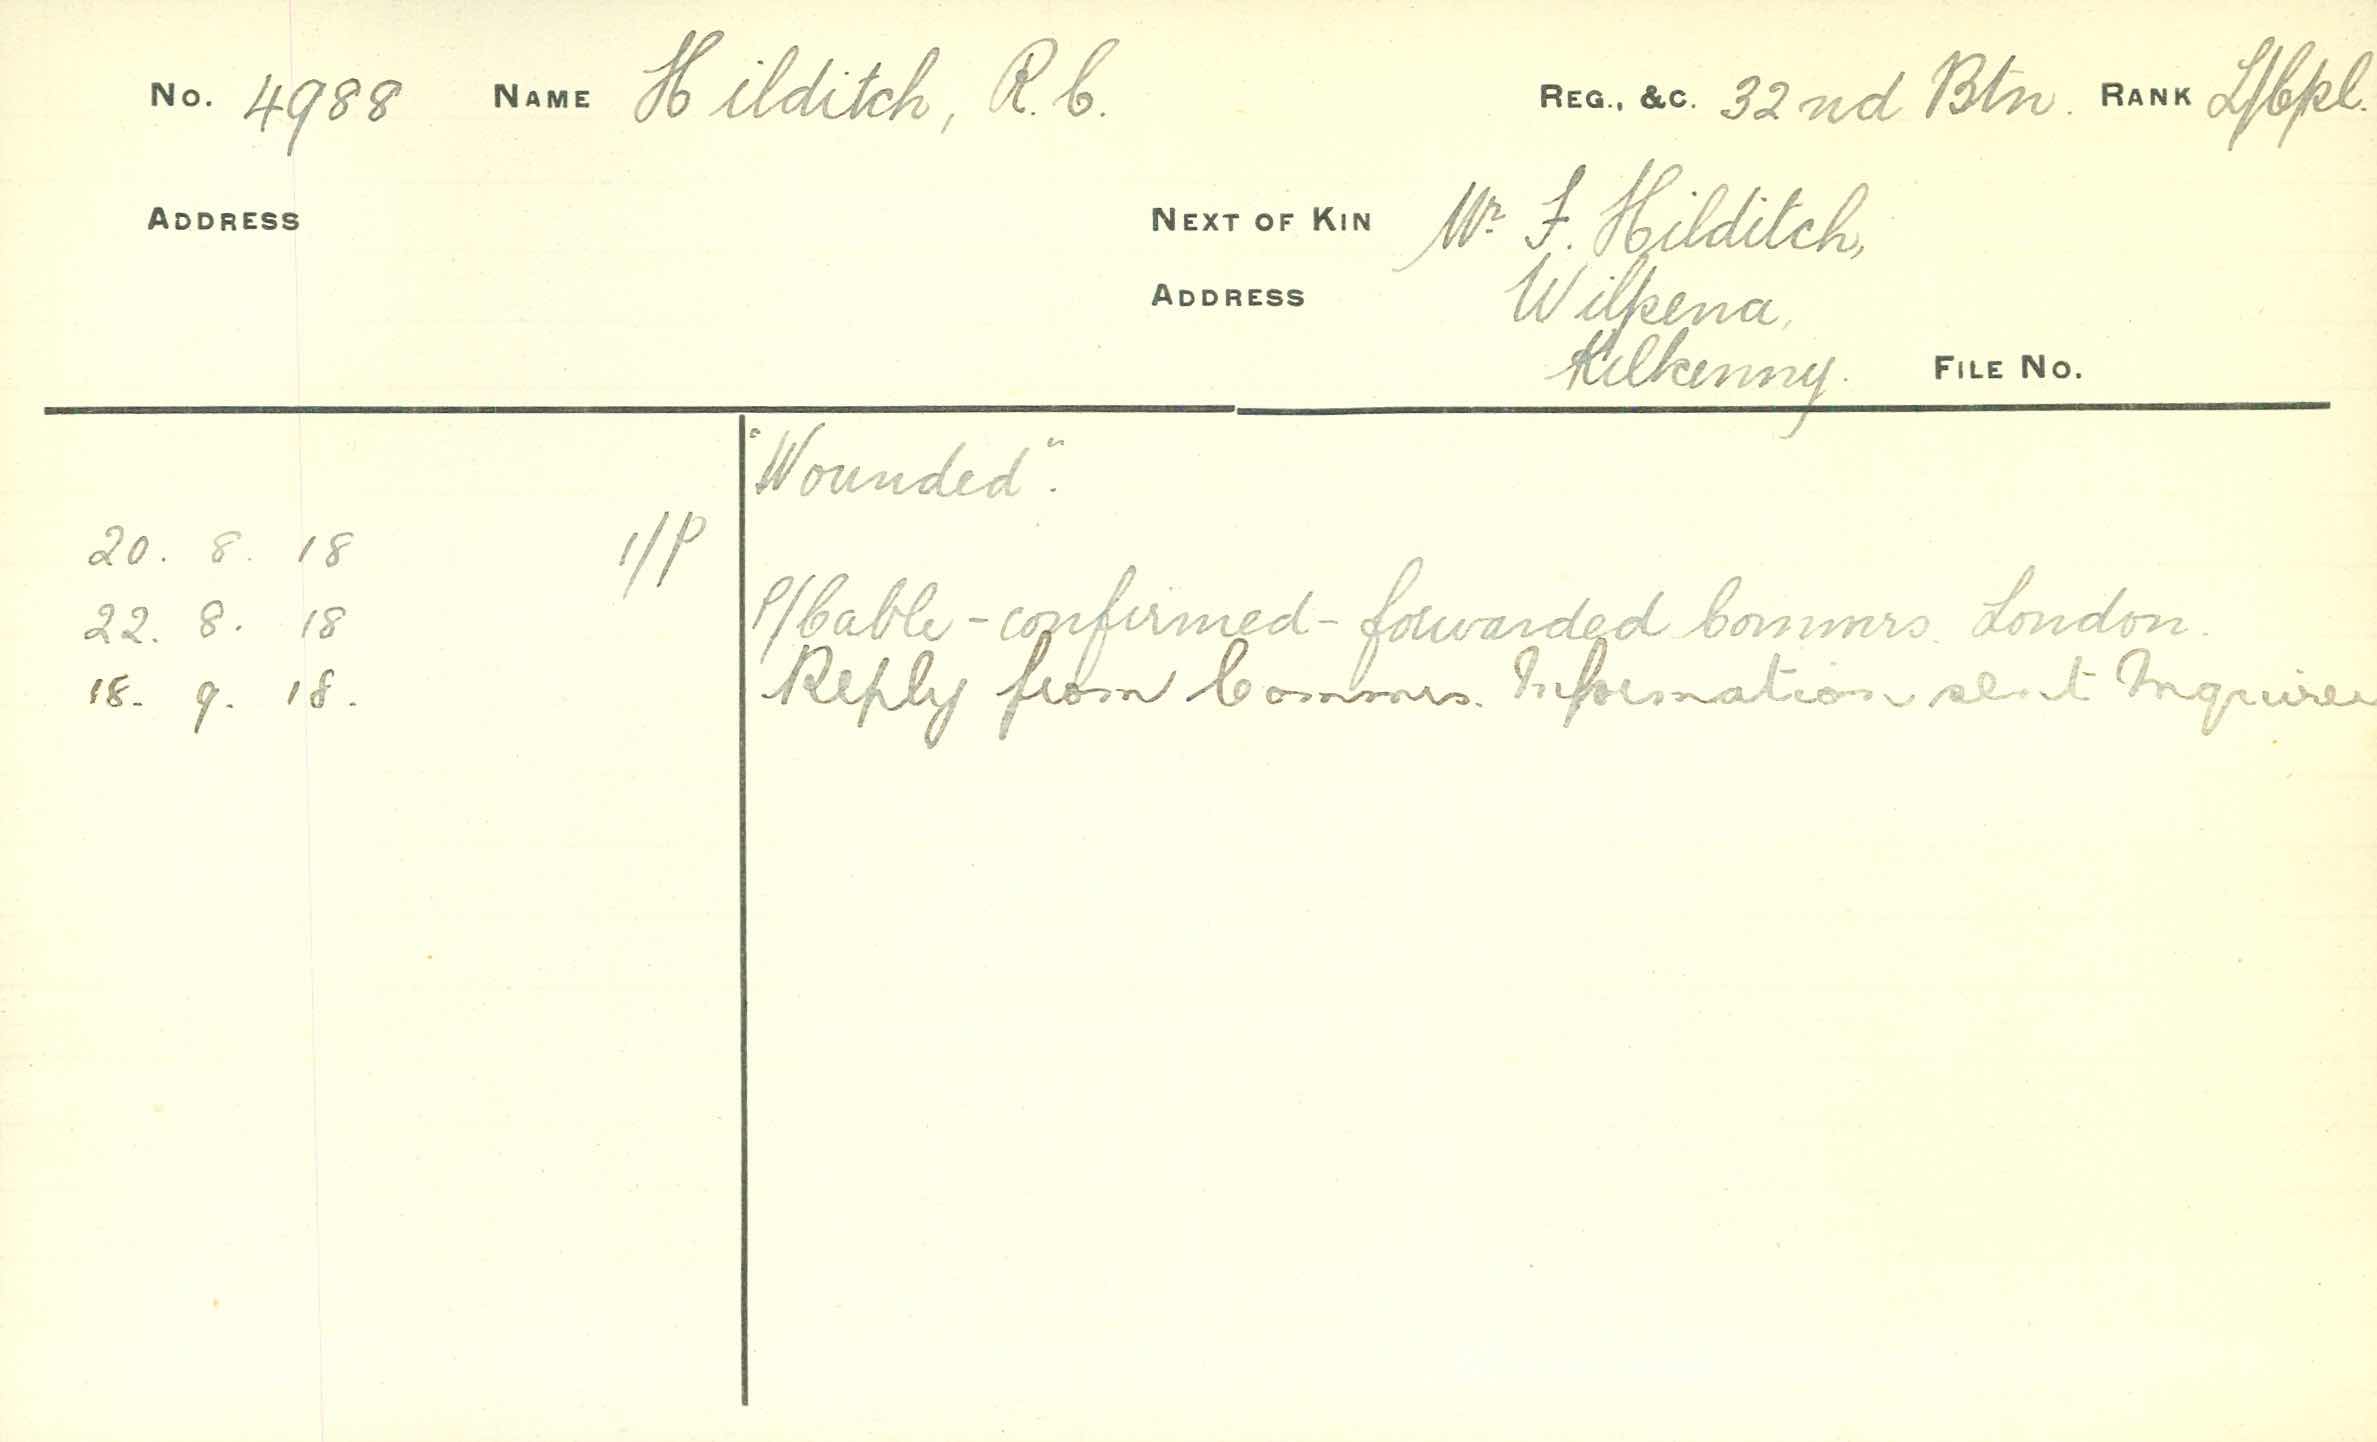 No. 4988 NAME Hilditch, R. C. REG., &C. 32nd Btn. RANK L/Cpl.
ADDRESS NEXT OF KIN Mr. F. Hilditch,
ADDRESS Wilpena,
Kilkenny. FILE No.
"Wounded".
20. 8. 18 1/P
22. 8. 18 P/Cable - confirmed - forwarded Commrs. London.
18. 9. 18. Reply from Commrs. Information sent Inquirer